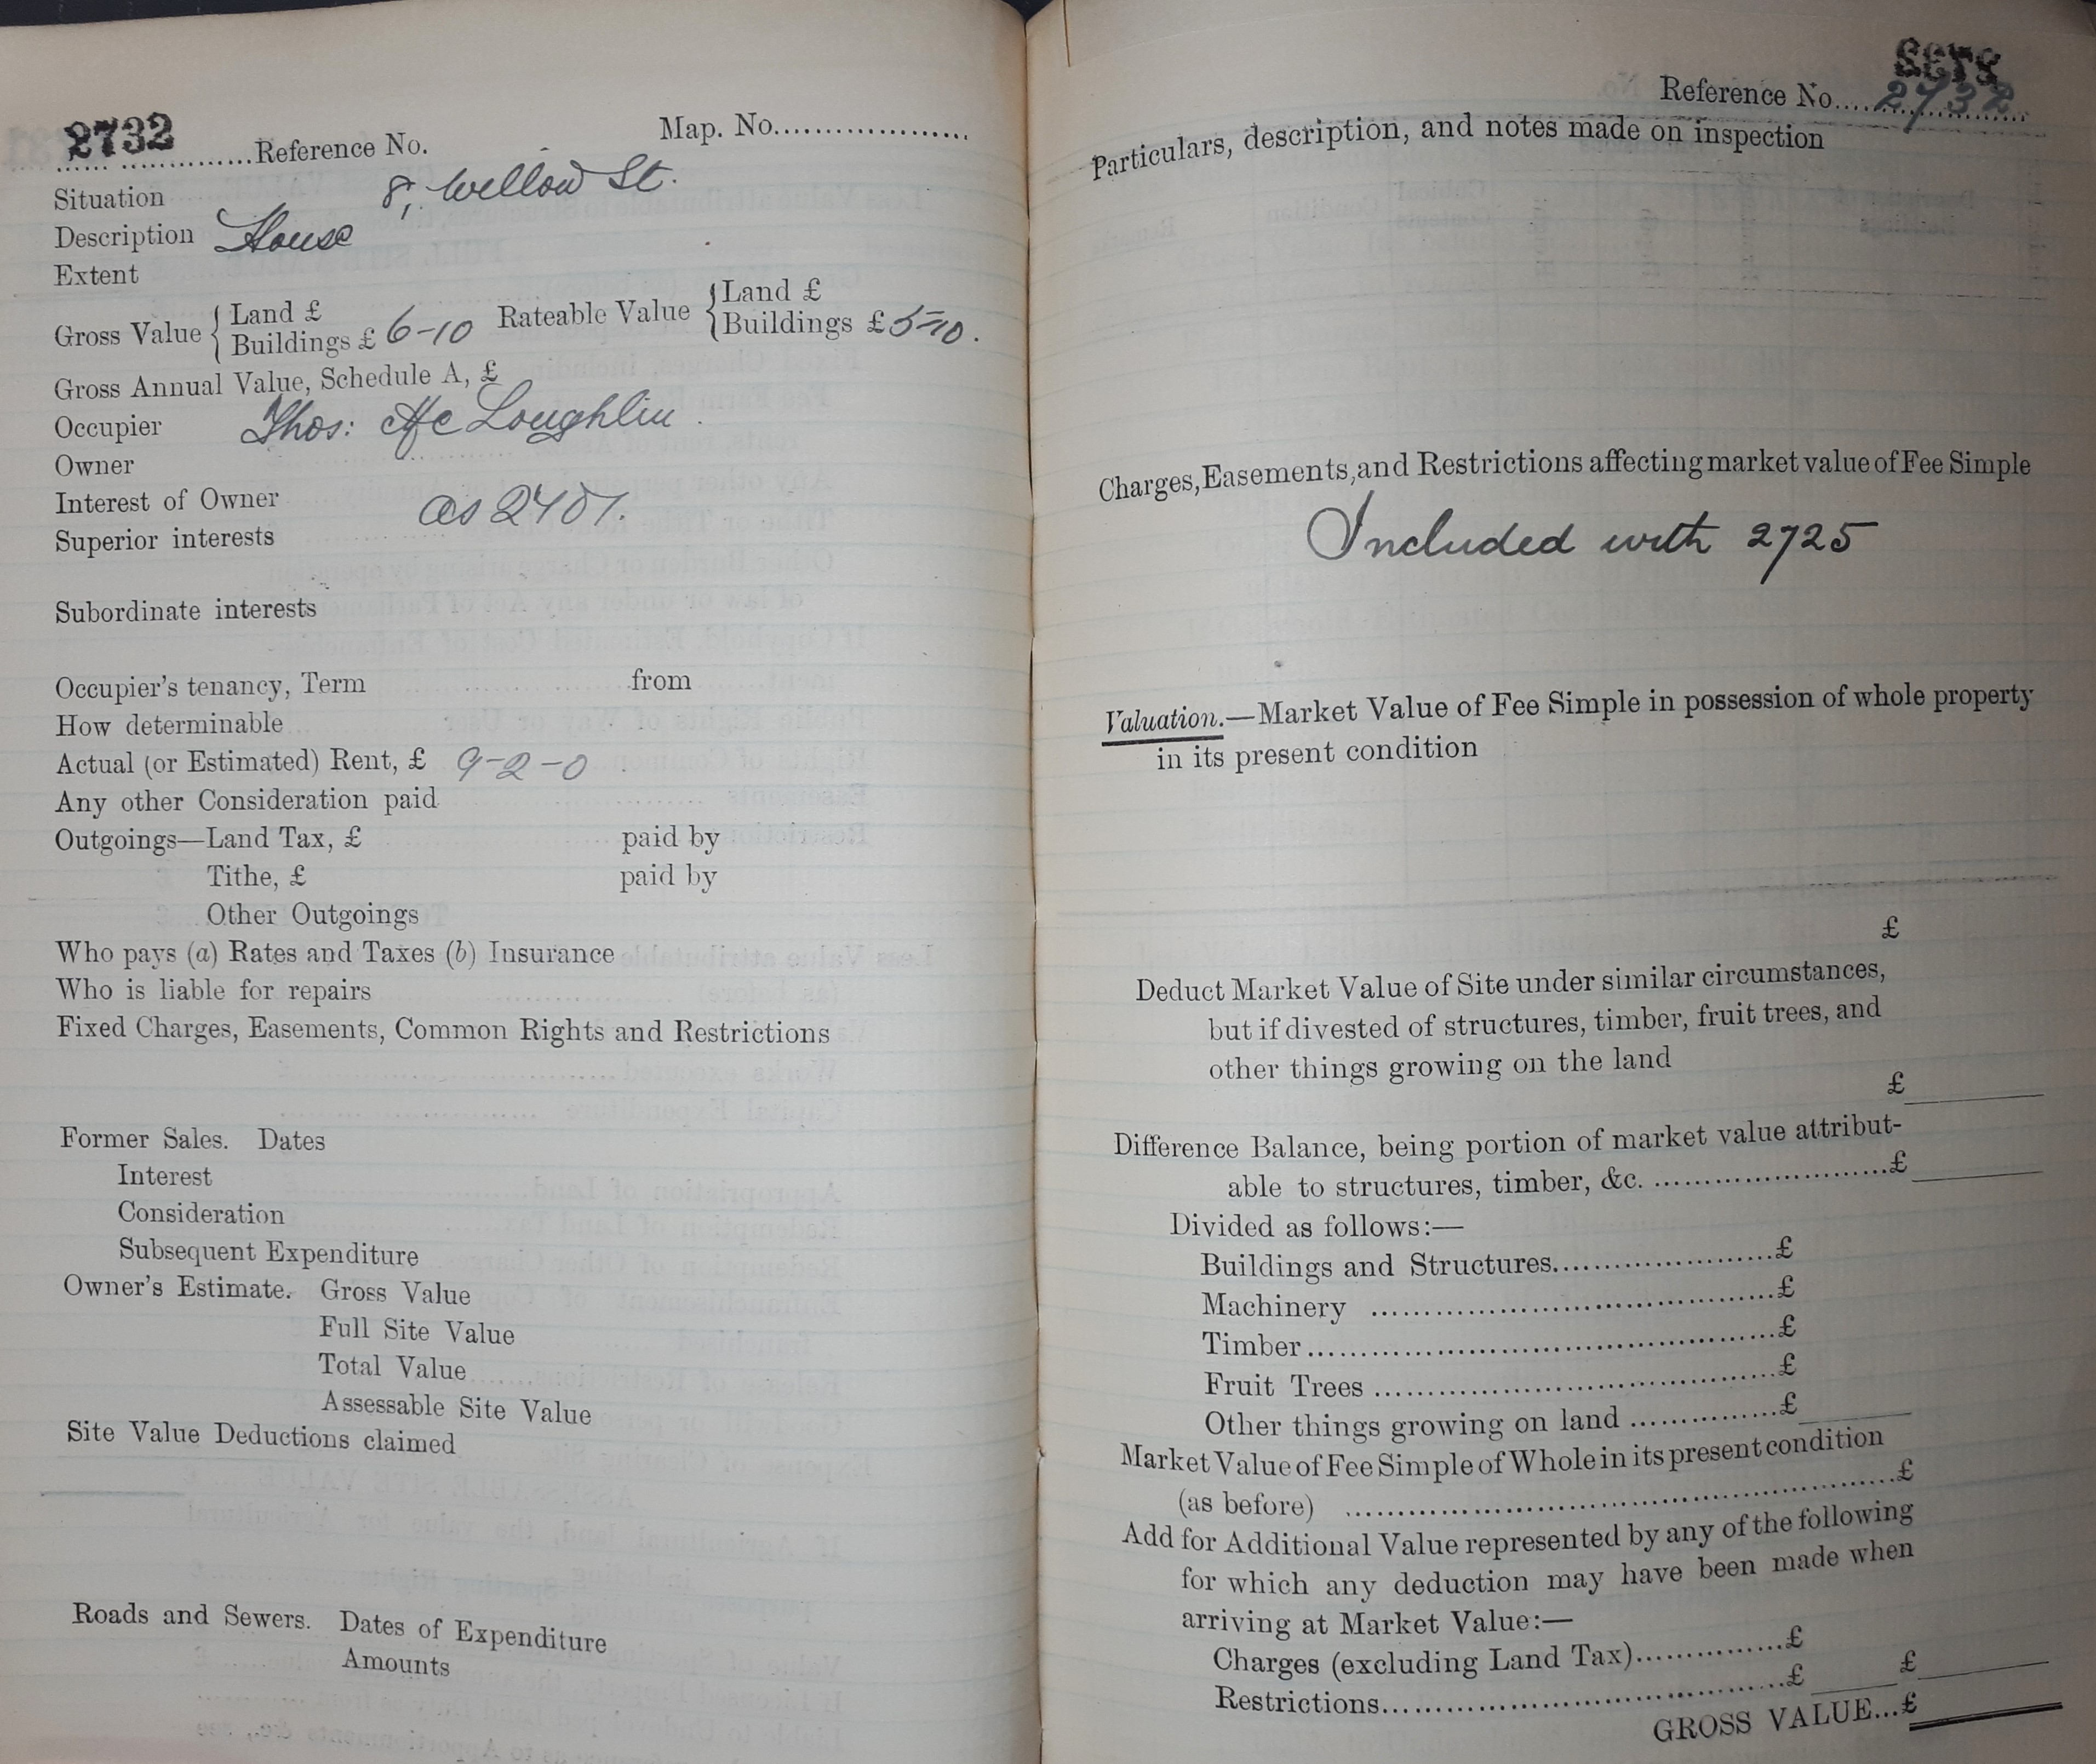 2732
Reference No.
Map. No
Situation 8, Wellow St.
Description House
Extent
Gross Value { Land £
Buildings £ 6-10
Rateable Value { Land £
Buildings £ 5-10.
Gross Annual Value, Schedule A, £
Occupier Thos: McLoughlin
Owner
Interest of Owner as 2701.
Superior interests
Subordinate interests
Occupier's tenancy, Term from
How determinable
Actual (or Estimated) Rent, £ 9-2-0
Any other Consideration paid
Outgoings—Land Tax, £ paid by
Tithe, £ paid by
Other Outgoings
Who pays (a) Rates and Taxes (b) Insurance
Who is liable for repairs
Fixed Charges, Easements, Common Rights and Restrictions
Former Sales. Dates
Interest
Consideration
Subsequent Expenditure
Owner's Estimate. Gross Value
Full Site Value
Total Value
Assessable Site Value
Site Value Deductions claimed
Roads and Sewers. Dates of Expenditure
Amounts
Reference No. 2732
Particulars, description, and notes made on inspection
Charges, Easements, and Restrictions affecting market value of Fee Simple
Included with 2725
Valuation.—Market Value of Fee Simple in possession of whole property
in its present condition
£
Deduct Market Value of Site under similar circumstances,
but if divested of structures, timber, fruit trees, and
other things growing on the land
£
Difference Balance, being portion of market value attribut-
able to structures, timber, &c. £
Divided as follows:—
Buildings and Structures £
Machinery £
Timber £
Fruit Trees £
Other things growing on land £
Market Value of Fee Simple of Whole in its present condition
(as before) £
Add for Additional Value represented by any of the following
for which any deduction may have been made when
arriving at Market Value:—
Charges (excluding Land Tax) £
Restrictions £ £
GROSS VALUE...£